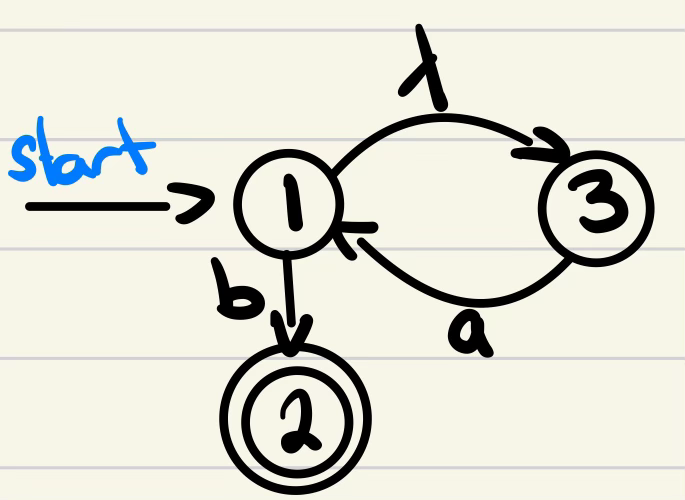 λ
start
1
3
b
a
2